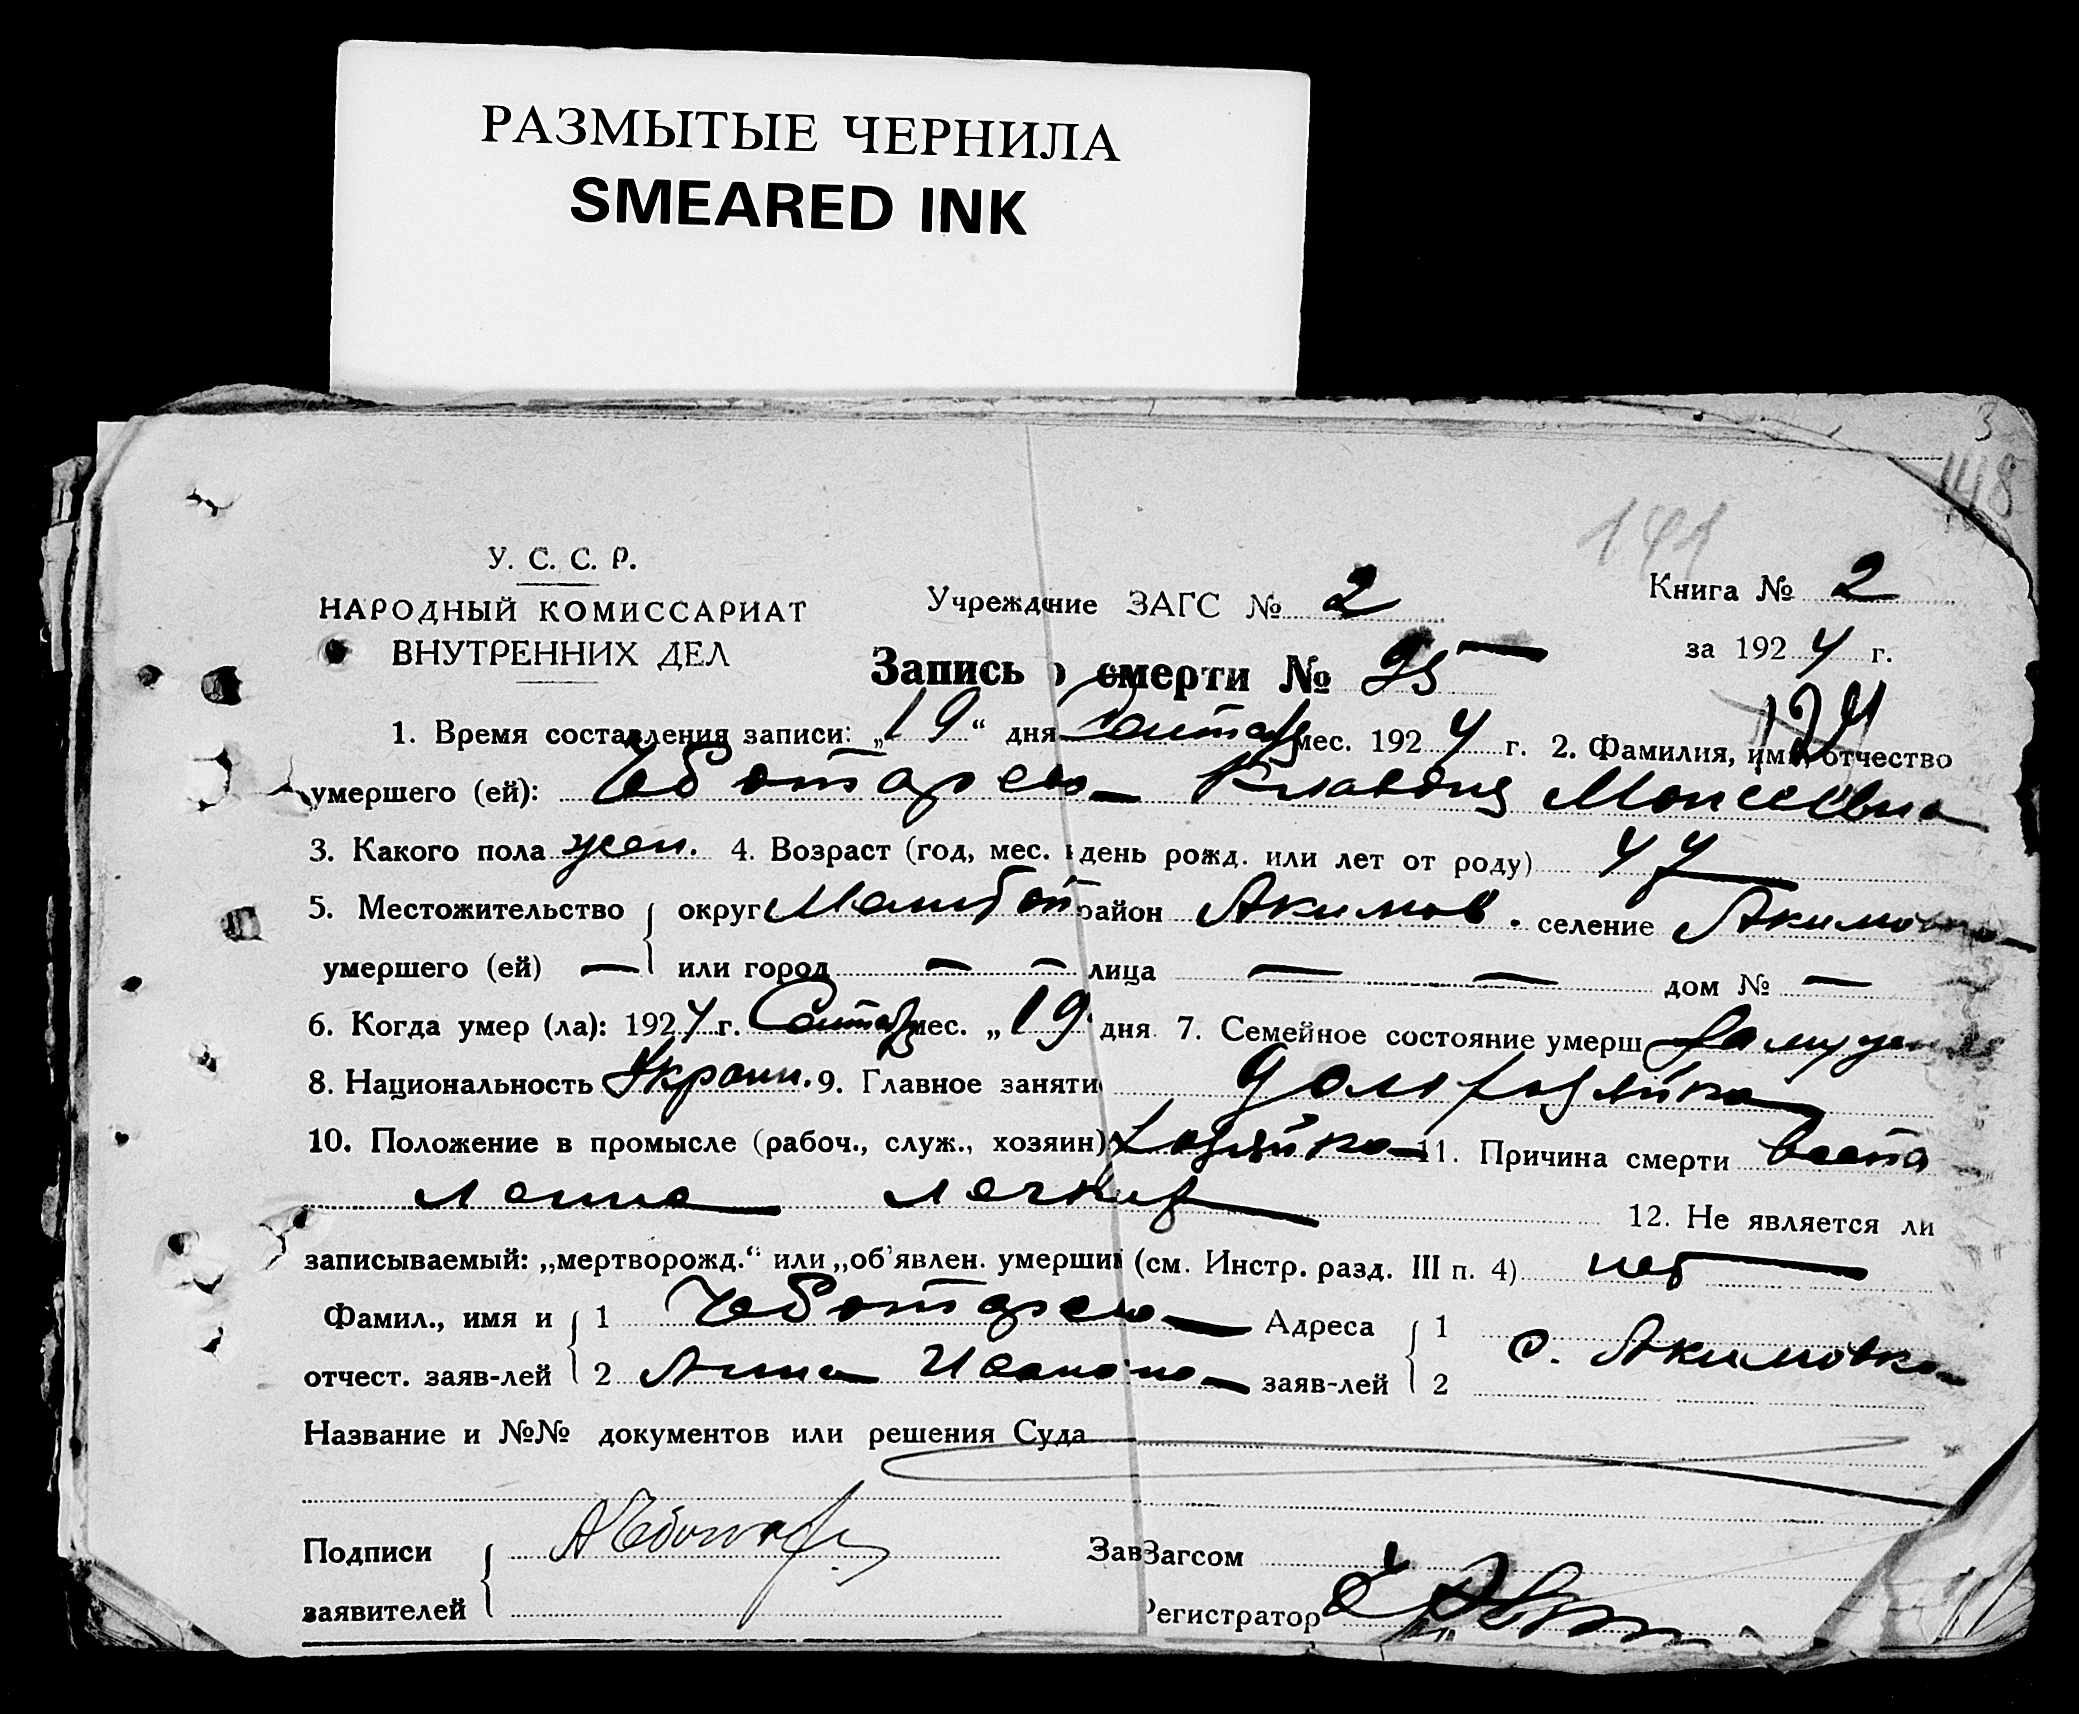 РАЗМЫТЫЕ ЧЕРНИЛА
SMEARED INK
3
148
141
У. С. С. Р.
НАРОДНЫЙ КОМИССАРИАТ
ВНУТРЕННИХ ДЕЛ
Учреждение ЗАГС № 2
Книга № 2
за 1924 г.
Запись о смерти № 95
124
1. Время составления записи: „19“ дня Сентяб мес. 1924 г. 2. Фамилия, имя, отчество
умершего (ей): Чеботарева Клавдия Моисеевна
3. Какого пола жен. 4. Возраст (год, мес. и день рожд. или лет от роду) 47
5. Местожительство округ Мелитоп район Акимов. селение Акимовка
умершего (ей) — или город — — лица — — дом № —
6. Когда умер (ла): 1924 г. Сентяб мес. „19 дня 7. Семейное состояние умерш Замужняя
8. Национальность Украин. 9. Главное заняти домхозяйка
10. Положение в промысле (рабоч., служ., хозяин) хозяйка 11. Причина смерти воспа
ление легких 12. Не является ли
записываемый: „мертворожд.“ или „об'явлен. умершим (см. Инстр. разд. III п. 4) нет
Фамил., имя и 1 Чеботарева Адреса 1 с. Акимовка
отчест. заяв-лей 2 Анна Ивановна заяв-лей 2
Название и №№ документов или решения Суда
Подписи АЧеботар Зав Загсом
заявителей Регистратор